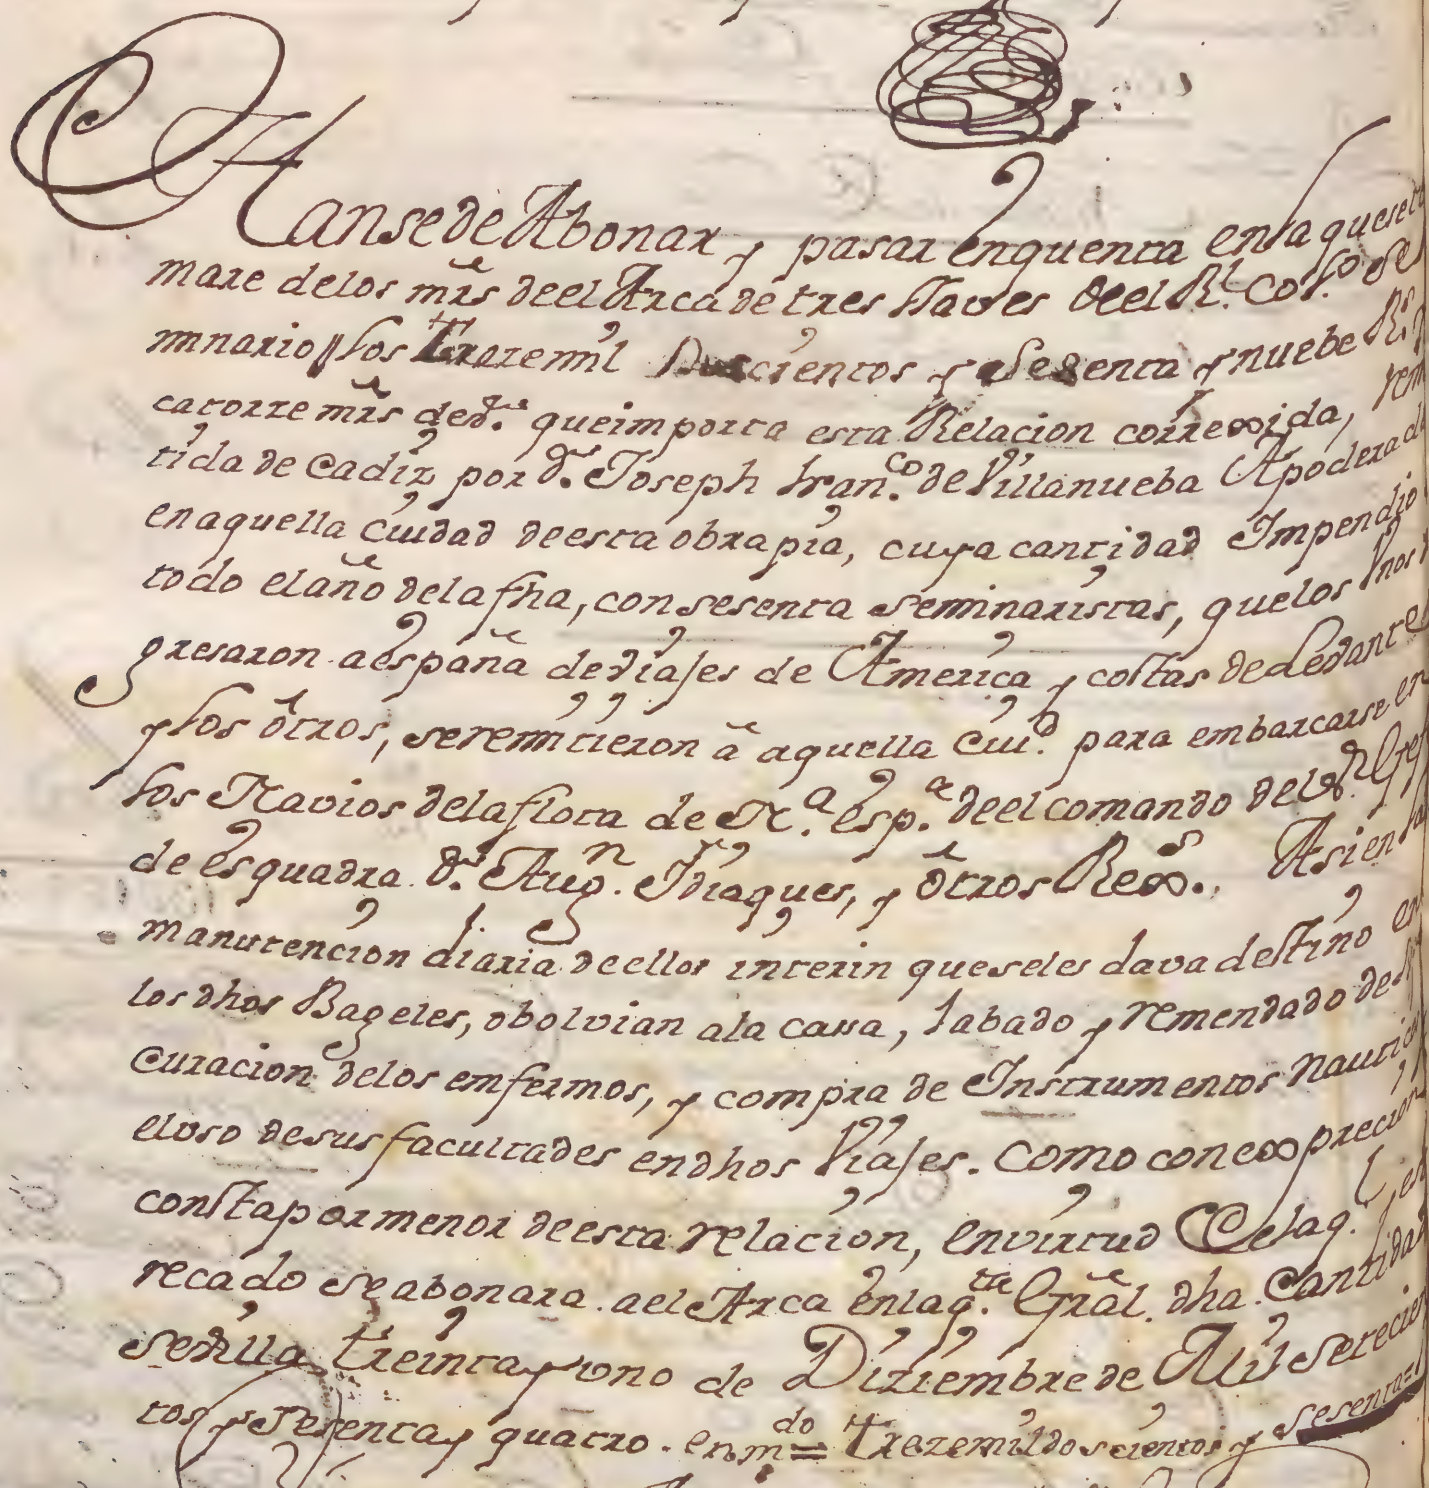 Hanse de Abonar y pasar en quenta en la que se to
mare de los mrs de el Arca de tres llaves de el Rl. Colo. Se
minario, los treze mil Duscientos y sesenta y nuebe Rs. y
catorze mrs de von. que importa esta Relacion correxida, remi
tida de Cadiz por Dn. Joseph Franco. de Villanueba Apoderado
en aquella Ciudad de esta obra pia, cuya cantidad Impendio
todo el año de la fha, con sesenta seminaristas, que los Vnos
gresaron a españa de viajes de America y costas de Levante
y los ótros, se remitieron á aquella Ciud. para embarcarse en
los Navios de la flota de Na. espa. de el comando de el Sr. Gefe
de esquadra Dn. Augn. Idiaques, y ótros Rexs. Asien la
manutencion diaria de ellos interin que se les dava destino en
los dhos Bageles, o bolvian a la casa, labado y remendado de
curacion de los emfermos, y compra de Instrumentos nautic
el uso de sus facultades en dhos Viajes. Como con expreción
consta por menor de esta relacion, en virtud de la ql. y
recado se abonara a el Arca en la qta. Gral. dha Cantidad
sevilla, treinta y uno de Diziembre de Mil setecien
tos y sesenta y quatro. enmdo = treze mil doscientos y sesenta =